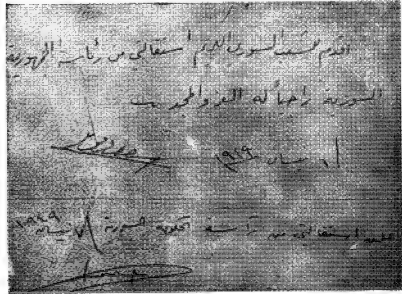 أقدم للشعب السوري الكريم استقالتي من رئاسة الجمهورية
السورية راجياً له العز والمجد
نيسان ١٩٤٩
استقالتي من رئاسة الحكومة السورية ٧ نيسان ١٩٤٩